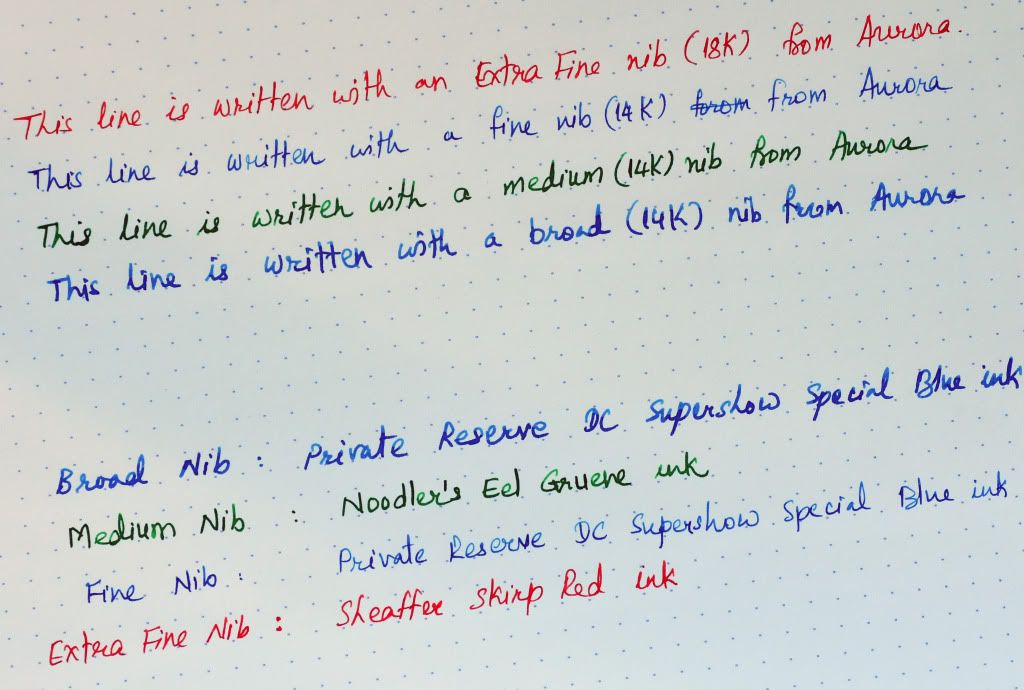 This line is written with an Extra Fine nib (18K) from Aurora.
This line is written with a fine nib (14K) forom from Aurora
This line is written with a medium (14K) nib from Aurora
This line is written with a broad (14K) nib from Aurora
Broad Nib : Private Reserve DC Supershow Special Blue ink
Medium Nib : Noodler's Eel Gruene ink
Fine Nib : Private Reserve DC Supershow Special Blue ink
Extra Fine Nib : Sheaffer Skrip Red ink